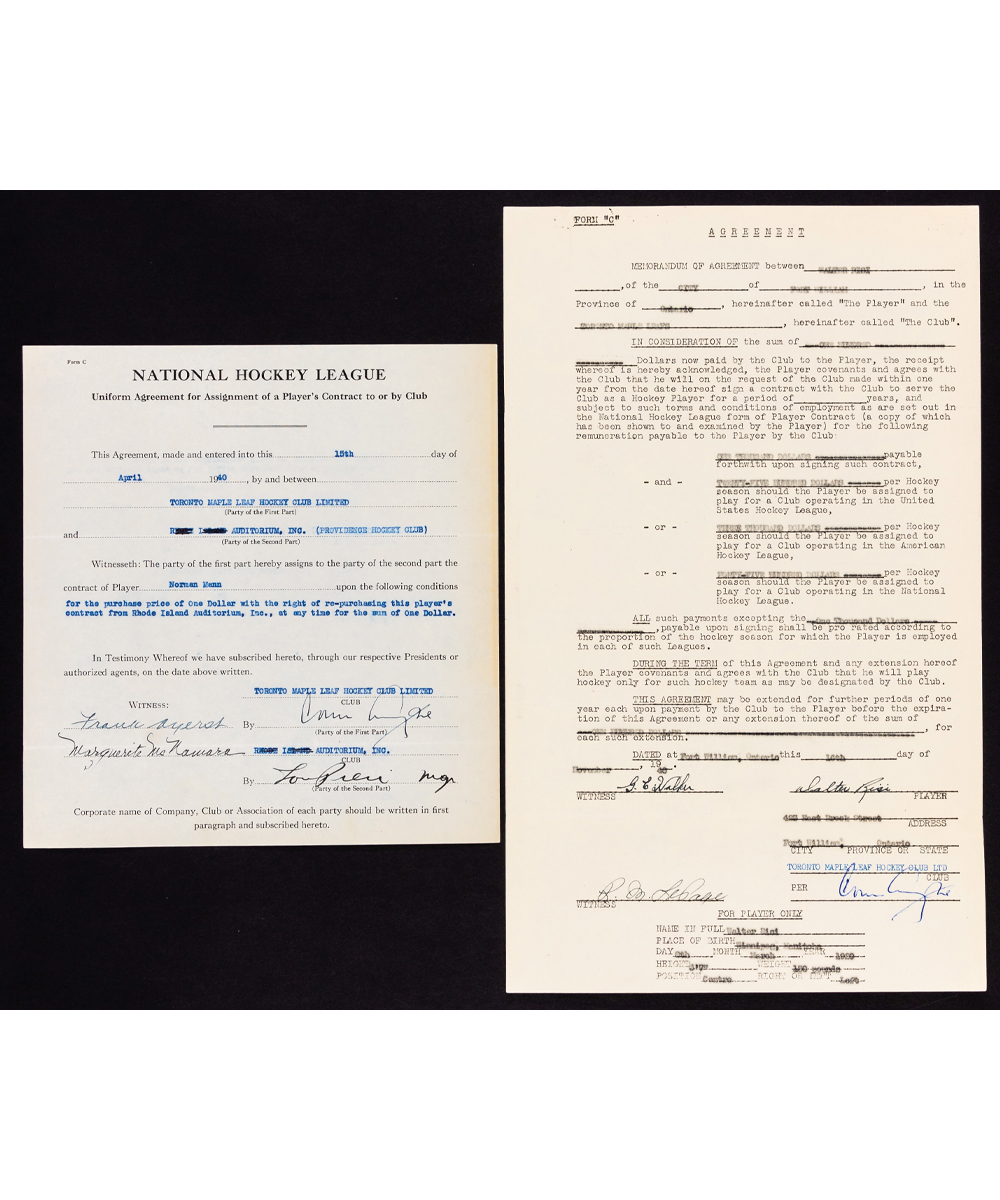 Form C
NATIONAL HOCKEY LEAGUE
Uniform Agreement for Assignment of a Player's Contract to or by Club
This Agreement, made and entered into this 15th day of
April 1940, by and between
TORONTO MAPLE LEAF HOCKEY CLUB LIMITED
(Party of the First Part)
and AUDITORIUM, INC. (PROVIDENCE HOCKEY CLUB)
(Party of the Second Part)
Witnesseth: The party of the first part hereby assigns to the party of the second part the
contract of Player Norman Mann upon the following conditions
for the purchase price of One Dollar with the right of re-purchasing this player's
contract from Rhode Island Auditorium, Inc., at any time for the sum of One Dollar.
In Testimony Whereof we have subscribed hereto, through our respective Presidents or
authorized agents, on the date above written.
TORONTO MAPLE LEAF HOCKEY CLUB LIMITED
WITNESS: CLUB
Frank Ayerst By Conn Smythe
(Party of the First Part)
Marguerite McNamara AUDITORIUM, INC.
CLUB
By Lou Pieri Mgr
(Party of the Second Part)
Corporate name of Company, Club or Association of each party should be written in first
paragraph and subscribed hereto.
FORM "C"
AGREEMENT
MEMORANDUM OF AGREEMENT between
, of the CITY of FORT WILLIAM, in the
Province of Ontario, hereinafter called "The Player" and the
TORONTO MAPLE LEAFS, hereinafter called "The Club".
IN CONSIDERATION OF the sum of ONE HUNDRED
Dollars now paid by the Club to the Player, the receipt
whereof is hereby acknowledged, the Player covenants and agrees with
the Club that he will on the request of the Club made within one
year from the date hereof sign a contract with the Club to serve the
Club as a Hockey Player for a period of years, and
subject to such terms and conditions of employment as are set out in
the National Hockey League form of Player Contract (a copy of which
has been shown to and examined by the Player) for the following
remuneration payable to the Player by the Club:
ONE THOUSAND DOLLARS payable
forthwith upon signing such contract,
- and - TWENTY-FIVE HUNDRED DOLLARS per Hockey
season should the Player be assigned to
play for a Club operating in the United
States Hockey League,
- or - THREE THOUSAND DOLLARS per Hockey
season should the Player be assigned to
play for a Club operating in the American
Hockey League,
- or - FORTY-FIVE HUNDRED DOLLARS per Hockey
season should the Player be assigned to
play for a Club operating in the National
Hockey League.
ALL such payments excepting the One Thousand Dollars
, payable upon signing shall be pro rated according to
the proportion of the hockey season for which the Player is employed
in each of such Leagues.
DURING THE TERM of this Agreement and any extension hereof
the Player covenants and agrees with the Club that he will play
hockey only for such hockey team as may be designated by the Club.
THIS AGREEMENT may be extended for further periods of one
year each upon payment by the Club to the Player before the expira-
tion of this Agreement or any extension thereof of the sum of
ONE HUNDRED DOLLARS, for
each such extension.
DATED at Fort William, Ontario this day of
November, 19
G. E. Walker Walter Risi
WITNESS PLAYER
East Brock Street
ADDRESS
Fort William, Ontario
CITY PROVINCE OR STATE
TORONTO MAPLE LEAF HOCKEY CLUB LTD
CLUB
PER Conn Smythe
R. M. LePage
WITNESS
FOR PLAYER ONLY
NAME IN FULL Walter Risi
PLACE OF BIRTH Winnipeg, Manitoba
DAY MONTH March YEAR
HEIGHT WEIGHT 150 pounds
POSITION Centre RIGHT OR LEFT Left